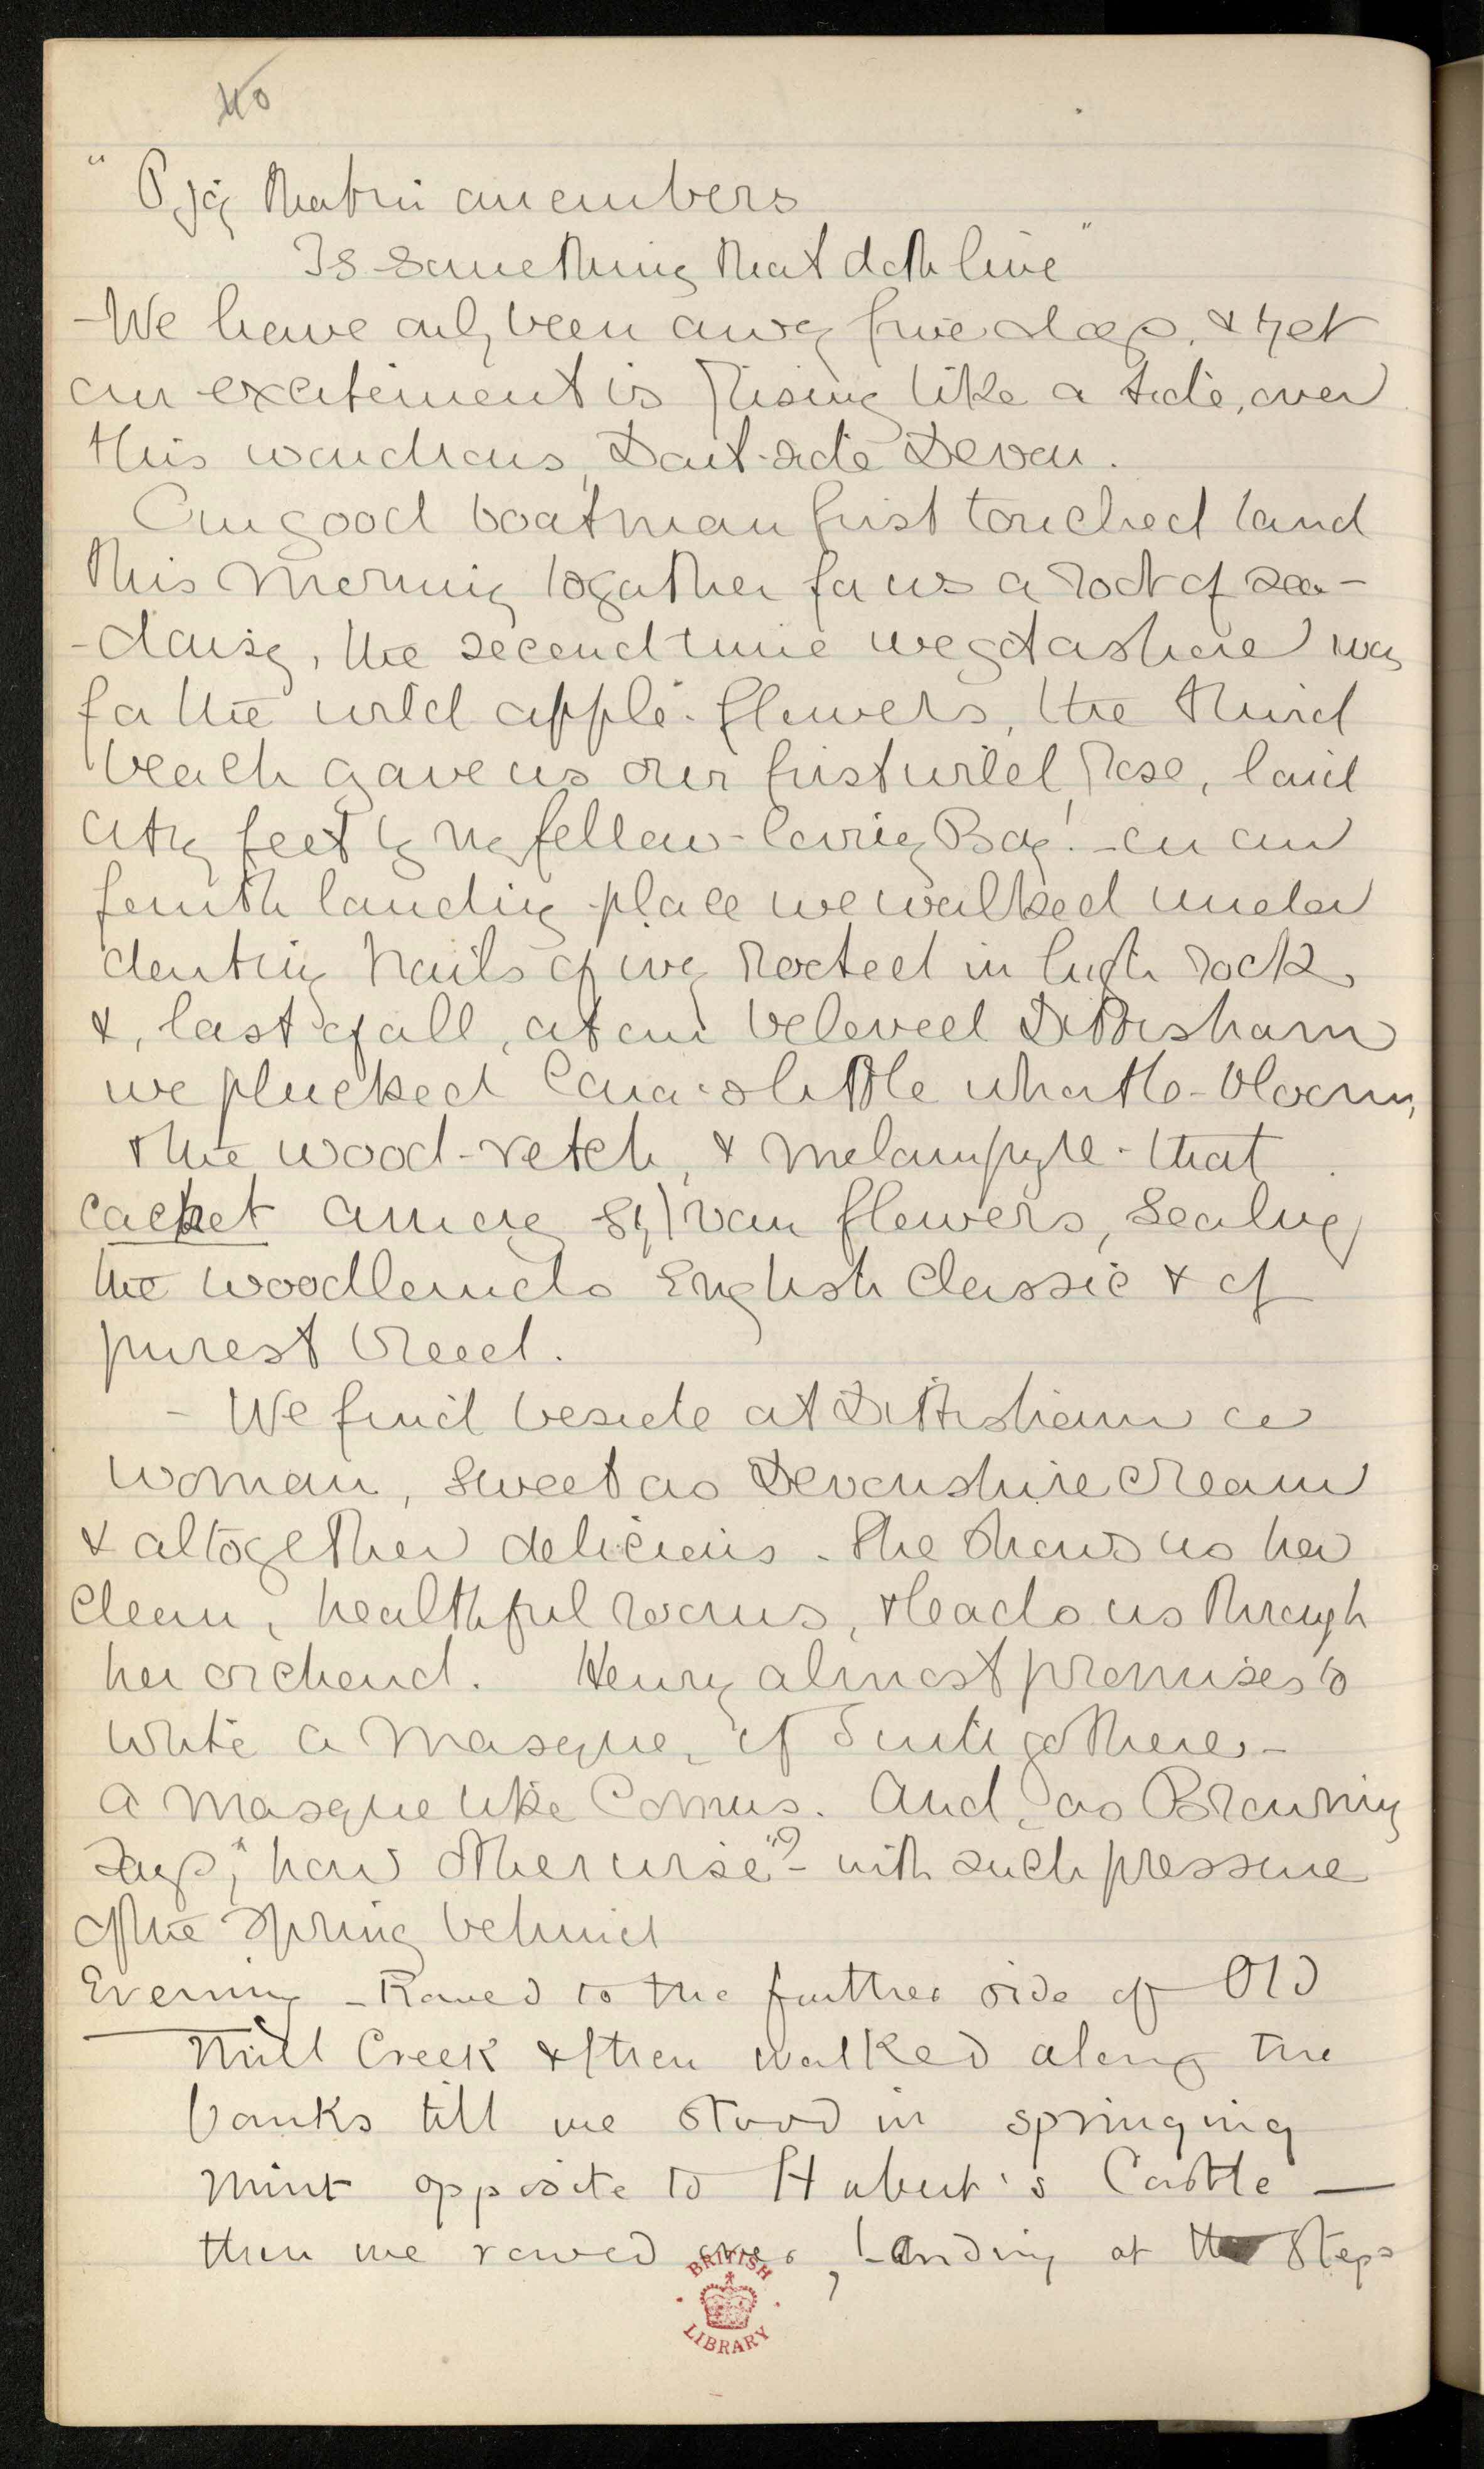 40
" O joy that in our embers
Is something that doth live "
- We have only been away five days, & yet
an excitement is rising like a tide, over
this wondrous, Dart-side Devon.
Our good boatman first touched land
this morning to gather for us a root of sea-
-daisy, the second time we got ashore was
for the wild apple-flowers, the third
beach gave us our first wild rose, laid
at my feet by my fellow-loving Boy! - on our
fourth landing-place we walked under
trails of ivy rooted in high rock,
&, last of all, at our beloved Dittisham
we plucked little whortle-bloom,
& the wood-vetch, & melampyre - that
cachet among sylvan flowers, sealing
the woodlands English classic & of
purest breed.
- We find beside at Dittisham a
woman, sweet as Devonshire cream
& altogether delicious. She shows us her
clean, healthful rooms, & leads us through
her orchard. Henry almost promises to
write a masque, if I will go there -
a masque like Comus. And, as Browning
says, "how otherwise"? - with such pressure
of the Spring behind
Evening - Rowed to the further side of Old
Mill Creek & then walked along the
banks till we stood in springing
mint opposite to Hubert's Castle —
then we rowed over, landing at the steps
BRITISH
LIBRARY